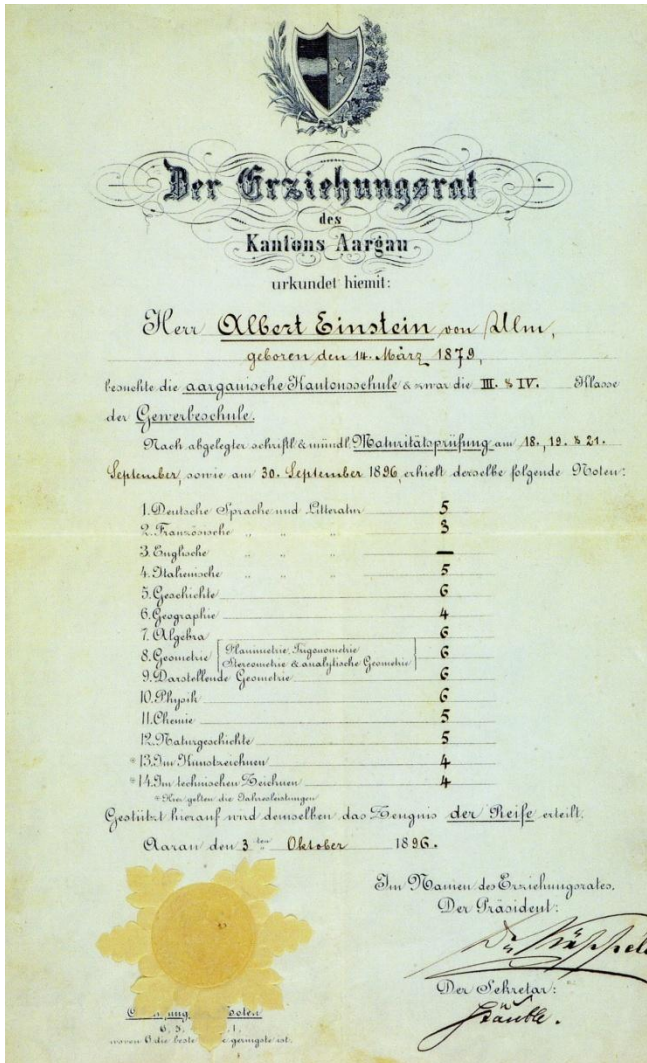 Der Erziehungsrat
des
Kantons Aargau
urkundet hiemit:
Herr Albert Einstein von Ulm,
geboren den 14. März 1879,
besuchte die aargauische Kantonsschule & zwar die III. & IV. Klasse
der Gewerbeschule.
Nach abgelegter schriftl. & mündl. Maturitätsprüfung am 18., 19. & 21.
September, sowie am 30. September 1896, erhielt derselbe folgende Noten:
1. Deutsche Sprache und Litteratur 5
2. Französische „ „ „ 3
3. Englische „ „ „ —
4. Italienische „ „ „ 5
5. Geschichte 6
6. Geographie 4
7. Algebra 6
8. Geometrie [Planimetrie, Trigonometrie
Stereometrie & analytische Geometrie] 6
9. Darstellende Geometrie 6
10. Physik 6
11. Chemie 5
12. Naturgeschichte 5
*13. Im Kunstzeichnen 4
*14. Im technischen Zeichnen 4
*Hier gelten die Jahresleistungen
Gestützt hierauf wird demselben das Zeugnis der Reife erteilt.
Aarau den 3ten Oktober 1896.
Im Namen des Erziehungsrates,
Der Präsident:
Der Sekretär:
Stäuble.
6, 5, 1,
wovon 6 die beste geringste ist.